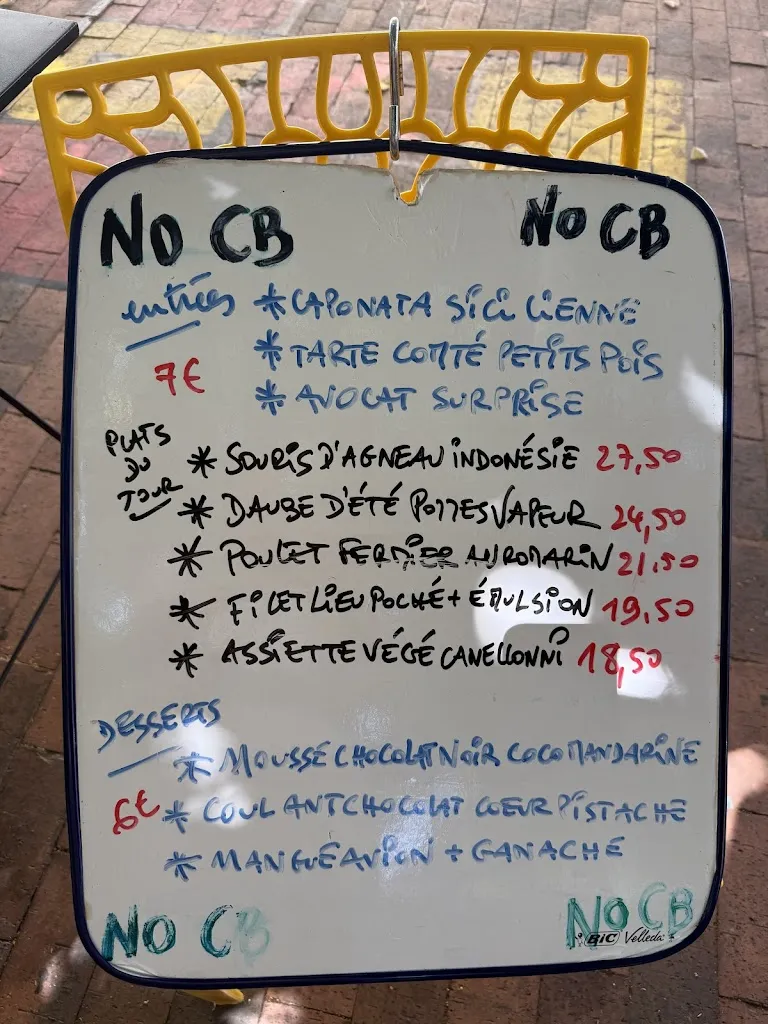 NO CB
NO CB
entrées
* CAPONATA SiCi LiENNE
7€
* TARTE COMTÉ PETiTS POiS
* AVOCAT SURPRiSE
PLATS
DU
JOUR
* SOURiS D'AGNEAU iNDONÉSiE 27,50
* DAUBE D'ÉTÉ POMMES VAPEUR 24,50
* POULET FERMiER AU ROMARiN 21.50
* FiLET LiEU POCHÉ + ÉMULSiON 19,50
* ASSiETTE VÉGÉ CANELLONNi 18,50
DESSERTS
* MOUSSE CHOCOLAT NOiR COCO MANDARiNE
6€
* COULANT CHOCOLAT COEUR PiSTACHE
* MANGUE AViON + GANACHE
NO CB
NO CB
BiC Velleda